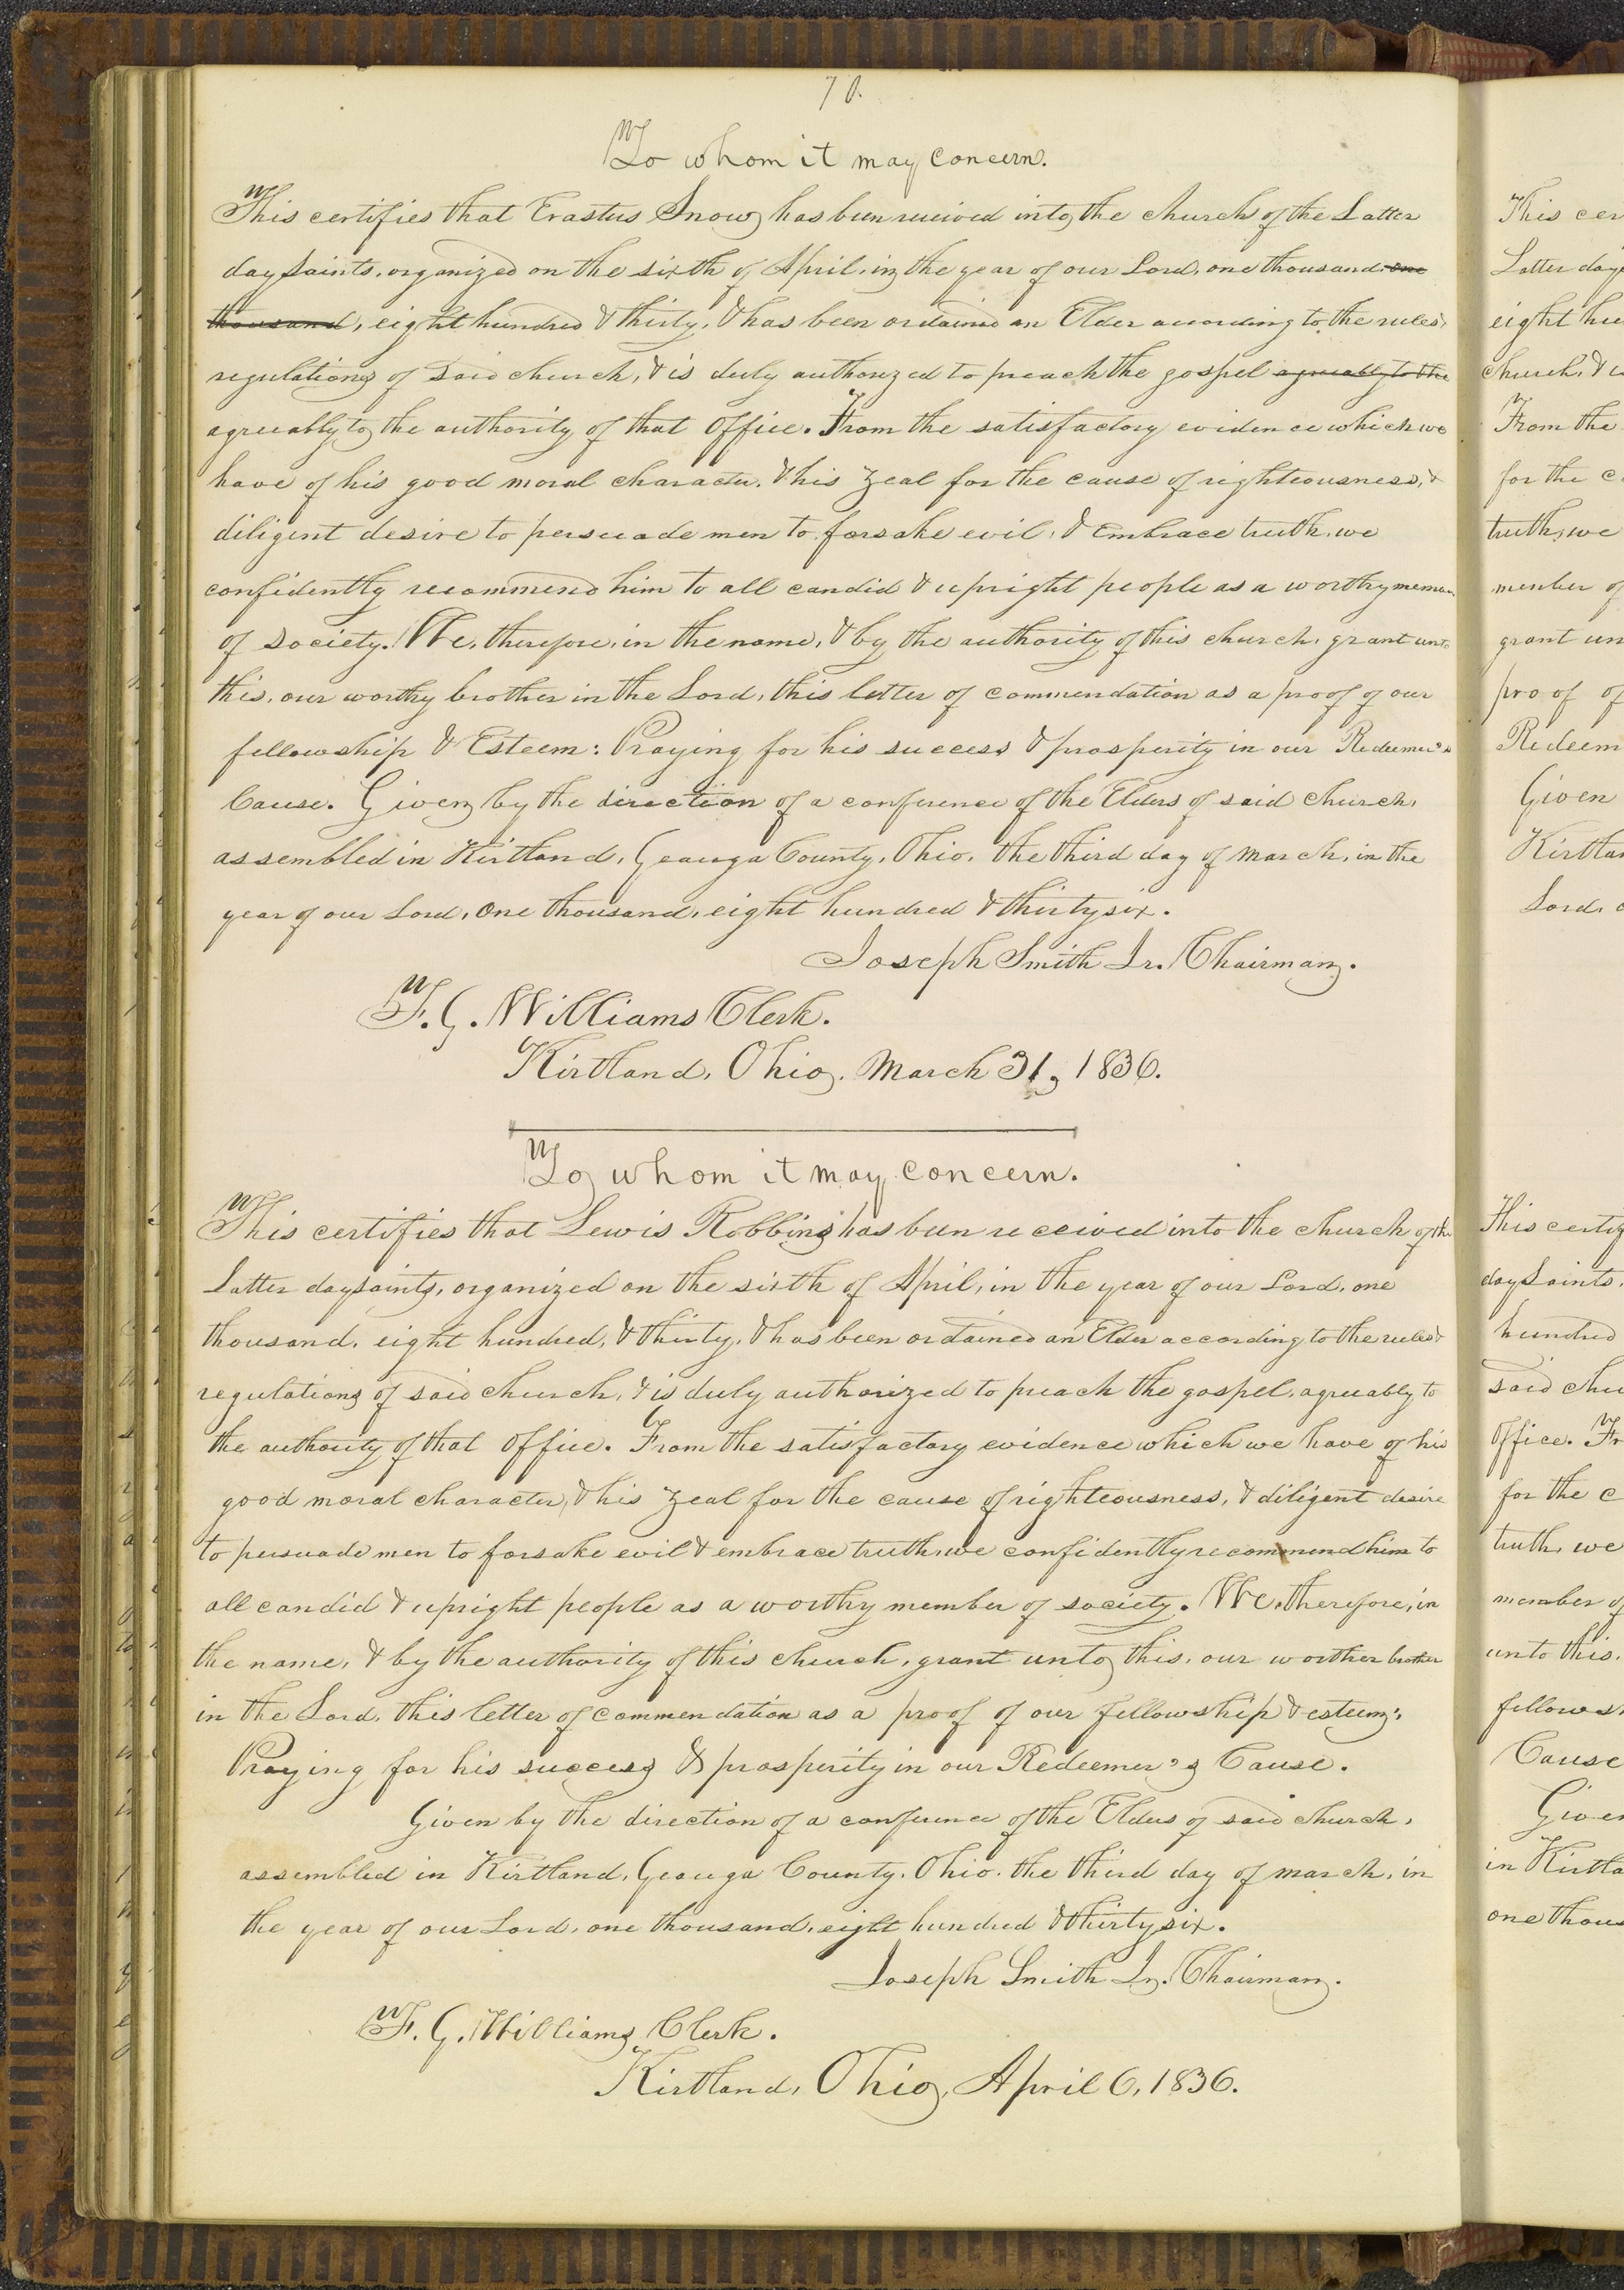 70.
To whom it may concern.
This certifies that Erastus Snow has been received into the church of the Latter
day saints, organized on the sixth of April, in the year of our Lord, one thousand, one
thousand, eight hundred & thirty, & has been ordained an Elder according to the rules &
regulations of said church, & is duly authorized to preach the gospel agreeably to the
agreeably to the authority of that office. From the satisfactory evidence which we
have of his good moral character, & his zeal for the cause of righteousness, &
diligent desire to persuade men to forsake evil, & embrace truth, we
confidently recommend him to all candid & upright people as a worthy member
of society. We, therefore, in the name, & by the authority of this church, grant unto
this, our worthy brother in the Lord, this letter of commendation as a proof of our
fellowship & Esteem: Praying for his success & prosperity in our Redeemer's
Cause. Given by the direction of a conference of the Elders of said church,
assembled in Kirtland, Geauga County, Ohio, the third day of March, in the
year of our Lord, one thousand, eight hundred & thirty six.
Joseph Smith Jr. Chairman.
F. G. Williams Clerk.
Kirtland, Ohio, March 31, 1836.
To whom it may concern.
This certifies that Lewis Robbins has been received into the church of the
Latter day saints, organized on the sixth of April, in the year of our Lord, one
thousand, eight hundred, & thirty, & has been ordained an Elder according to the rules &
regulations of said church, & is duly authorized to preach the gospel, agreeably to
the authority of that office. From the satisfactory evidence which we have of his
good moral character, & his zeal for the cause of righteousness, & diligent desire
to persuade men to forsake evil & embrace truth, we confidently recommend him to
all candid & upright people as a worthy member of society. We, therefore, in
the name, & by the authority of this church, grant unto this, our worther brother
in the Lord, this letter of commendation as a proof of our fellowship & esteem:
Praying for his success & prosperity in our Redeemer's Cause.
Given by the direction of a conference of the Elders of said church,
assembled in Kirtland, Geauga County, Ohio, the third day of march, in
the year of our Lord, one thousand, eight hundred & thirty six.
Joseph Smith Jr. Chairman.
F. G. Williams Clerk.
Kirtland, Ohio, April 6, 1836.
This cer
Latter day
eight hu
church, & i
From the
for the c
truth, we
member of
grant un
proof of
Redeem
Given
Kirtlan
Lord, o
This certif
day Saints,
hundred
said chu
Office. Fr
for the c
truth, we
member of
unto this,
fellowsh
Cause
Given
in Kirtla
one thous